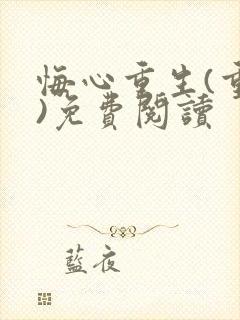 悔心重生(重
)免費閱讀
藍夜